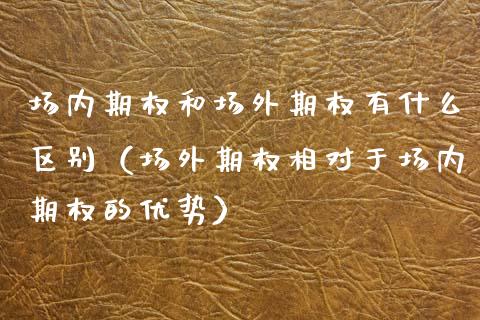 场内期权和场外期权有什么
区别（场外期权相对于场内
期权的优势）